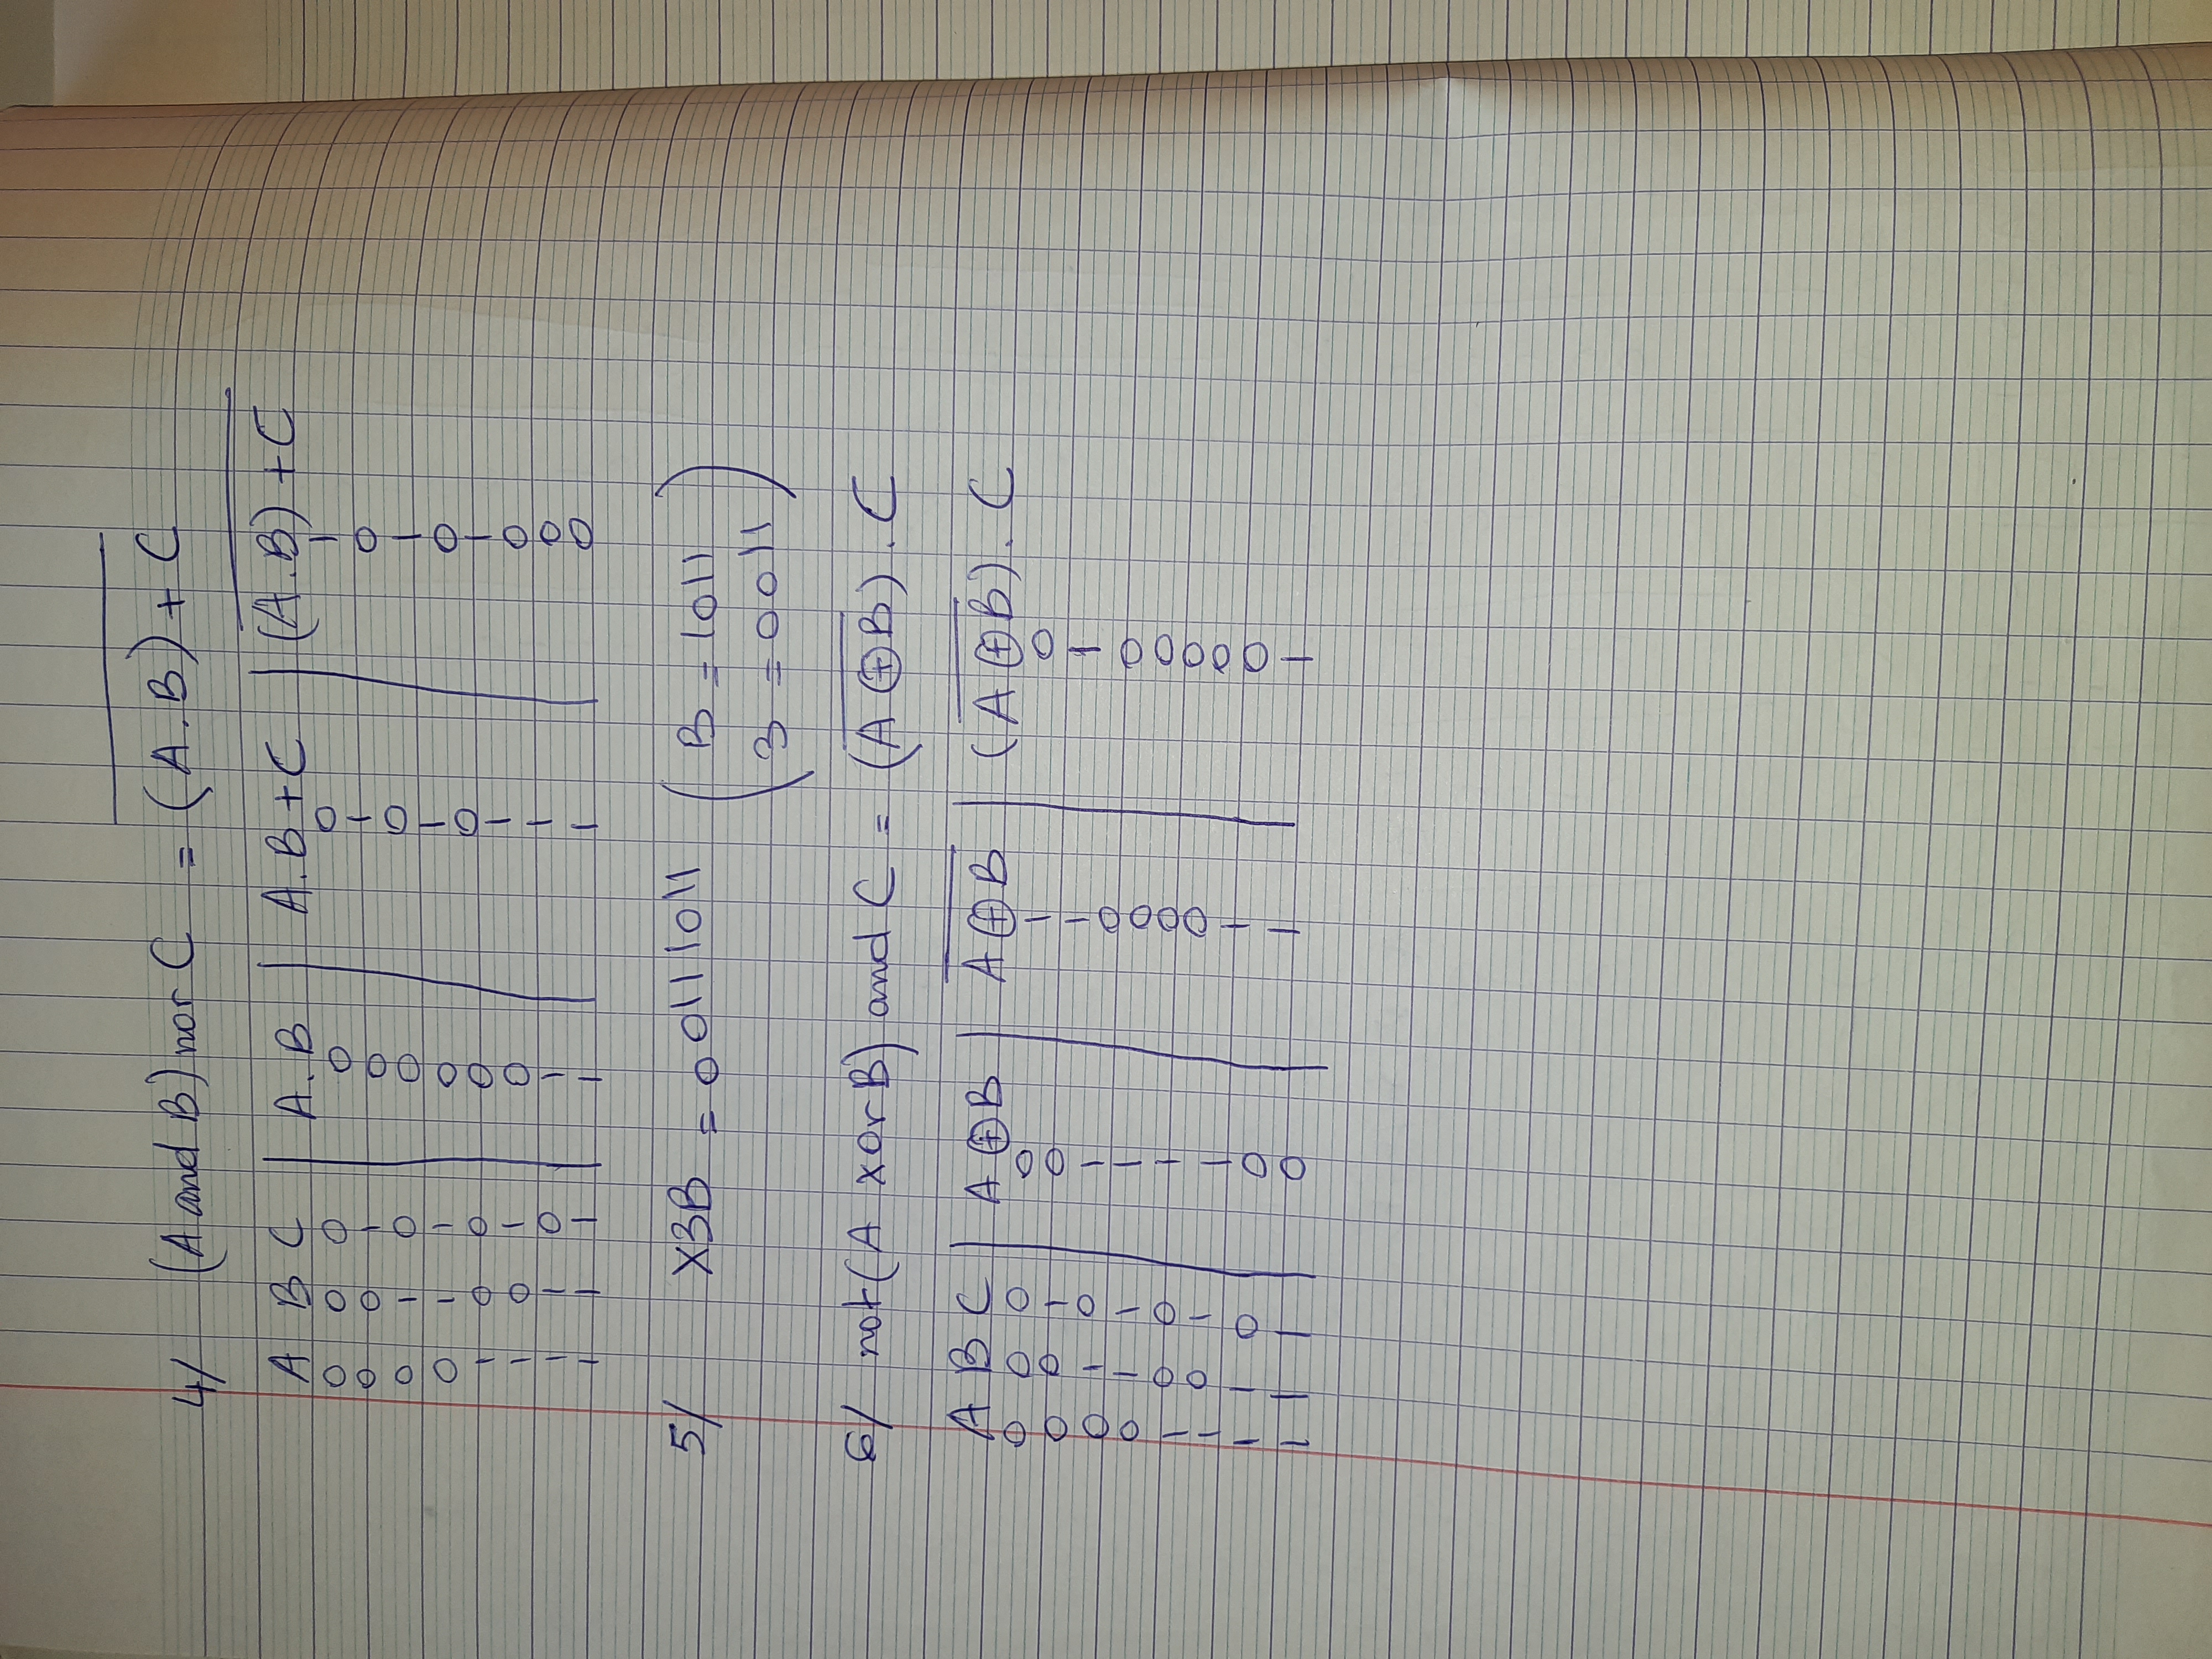 4/ (A and B) nor C = \overline{(A.B) + C}
A B C | A.B | A.B + C | \overline{(A.B) + C}
0 0 0 | 0 | 0 | 1
0 0 1 | 0 | 1 | 0
0 1 0 | 0 | 0 | 1
0 1 1 | 0 | 1 | 0
1 0 0 | 0 | 0 | 1
1 0 1 | 0 | 1 | 0
1 1 0 | 1 | 1 | 0
1 1 1 | 1 | 1 | 0
5/ X3B = 00111011 ( B = 1011
3 = 0011 )
6/ not (A xor B) and C = (\overline{A ⊕ B}) . C
A B C | A ⊕ B | \overline{A ⊕ B} | (\overline{A ⊕ B}) . C
0 0 0 | 0 | 1 | 0
0 0 1 | 0 | 1 | 1
0 1 0 | 1 | 0 | 0
0 1 1 | 1 | 0 | 0
1 0 0 | 1 | 0 | 0
1 0 1 | 1 | 0 | 0
1 1 0 | 0 | 1 | 0
1 1 1 | 0 | 1 | 1